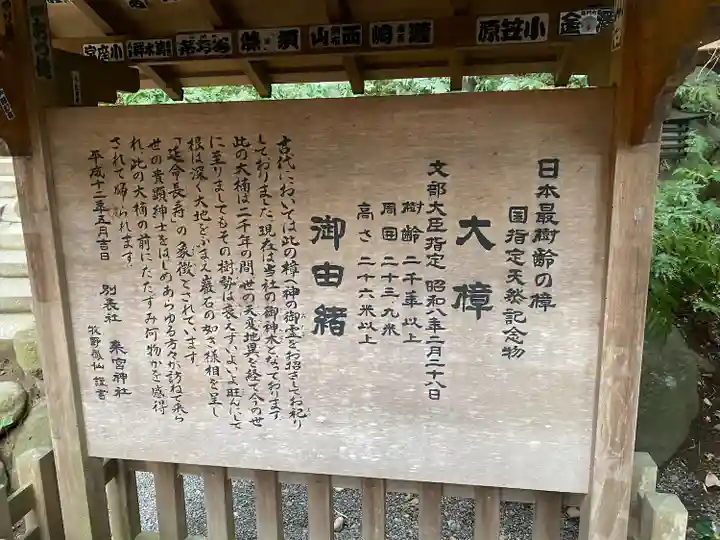 日本最樹齢の樟
国指定天然記念物
大樟
文部大臣指定 昭和八年二月二十八日
樹齢 二千年以上
周囲 二十三、九米
高さ 二十六米以上
御由緒
古代においては此の樟へ神の御霊をお招きしてお祀り
しておりました。現在は当社の御神木となっております
此の大楠は二千年の間 世の天変地異を経て今の世
に至りましてもその樹勢は衰えずいよいよ旺んにして
根は深く大地をふまえ巌石の如き様相を呈し
「延命長寿」の象徴とされています。
世の貴顕紳士をはじめあらゆる方々が訪ねて来ら
れ、此の大楠の前にたたずみ何物かを感得
されて帰られます。
平成十二年五月吉日
別表社 来宮神社
牧野 仙 謹書
小笠原
西山